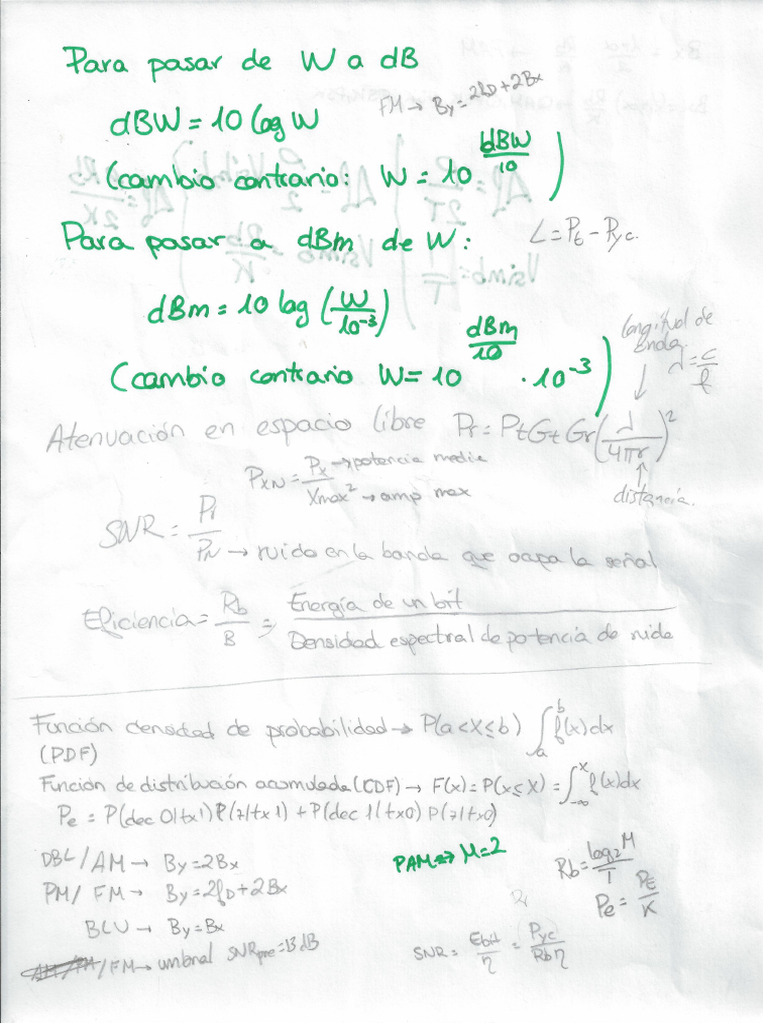 Para pasar de W a dB
FM → By = 2fD + 2Bx
dBW = 10 log W
(cambio contrario: W = 10^(dBW/10))
Para pasar a dBm de W:
L = Pt - Pyc.
dBm = 10 log (W/10^-3)
(cambio contrario W = 10^(dBm/10) · 10^-3)
longitud de
onda.
λ = c/f
Atenuación en espacio libre Pr = PtGtGr(λ/4πr)^2
distancia.
PxN = Px/Xmax^2
→ potencia media
→ amp max
SNR = Pr/PN → ruido en la banda que ocupa la señal
Eficiencia = Rb/B = Energía de un bit / Densidad espectral de potencia de ruido
Función densidad de probabilidad → P(a<X≤b) ∫_a^b f(x)dx
(PDF)
Función de distribución acumulada (CDF) → F(x) = P(x≤X) = ∫_-∞^x f(x)dx
Pe = P(dec 0/tx1) P(7/tx1) + P(dec 1/tx0) P(7/tx0)
DBL/AM → By = 2Bx
PM/FM → By = 2fD + 2Bx
BLU → By = Bx
/FM → umbral SNRpre = 13 dB
PAM → M=2
Rb = log2 M/T
Pe = PE/K
SNR = Ebit/η = Pyc/Rbη